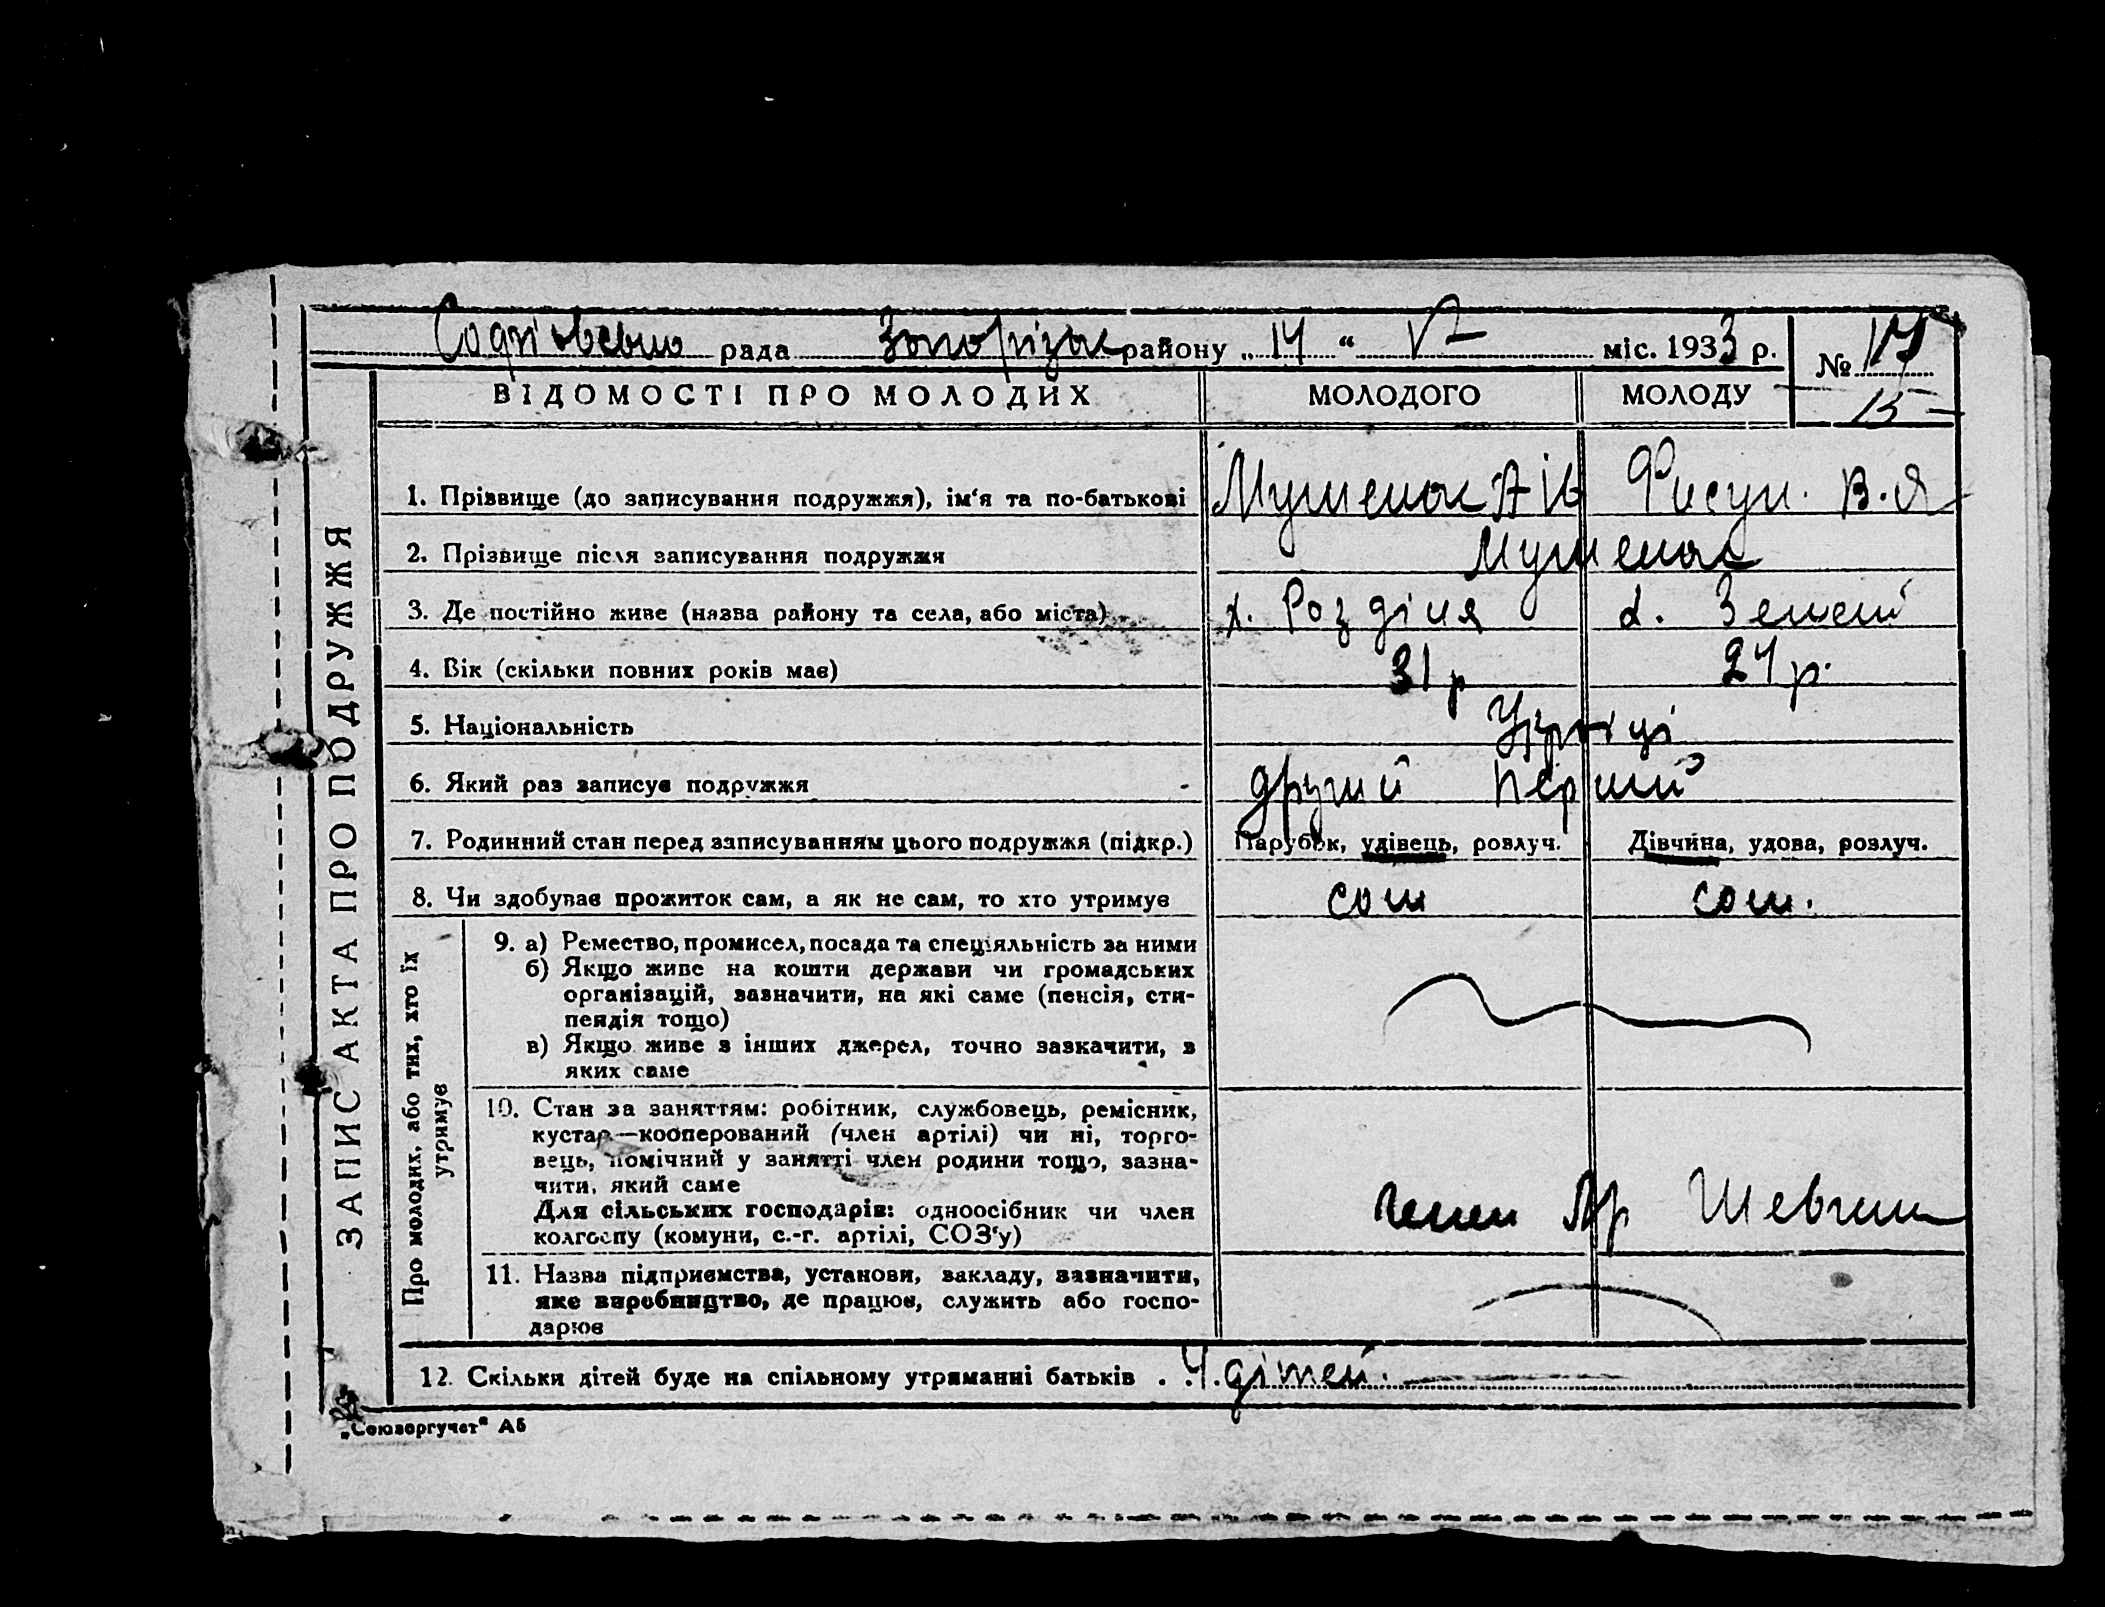 рада Запорізьк району „14“ міс. 1933 р. №
15
ВІДОМОСТІ ПРО МОЛОДИХ МОЛОДОГО МОЛОДУ
ЗАПИС АКТА ПРО ПОДРУЖЖЯ
1. Прізвище (до записування подружжя), ім‘я та по-батькові В.Я
2. Прізвище після записування подружжя
3. Де постійно живе (назва району та села, або міста) х. Розділля
4. Вік (скільки повних років має) 31 р 24 р.
5. Національність Укр-нці
6. Який раз записує подружжя другий перший
7. Родинний стан перед записуванням цього подружжя (підкр.) Парубок, удівець, розлуч. Дівчина, удова, розлуч.
8. Чи здобуває прожиток сам, а як не сам, то хто утримує сам сам.
Про молодих, або тих, хто їх
утримує
9. а) Ремество, промисел, посада та спеціяльність за ними
б) Якщо живе на кошти держави чи громадських
організацій, зазначити, на які саме (пенсія, сти-
пендія тощо)
в) Якщо живе з інших джерел, точно зазначити, з
яких саме
10. Стан за заняттям: робітник, службовець, ремісник,
кустар—кооперований (член артілі) чи ні, торго-
вець, помічний у занятті член родини тощо, зазна-
чити, який саме
Для сільських господарів: одноосібник чи член
колгоспу (комуни, с.-г. артілі, СОЗ‘у)
член Ар Шевченк
11. Назва підприємства, установи, закладу, зазначити,
яке виробництво, де працює, служить або госпо-
дарює
12. Скільки дітей буде на спільному утриманні батьків . 4 дітей.
„Союзоргучет“ А5